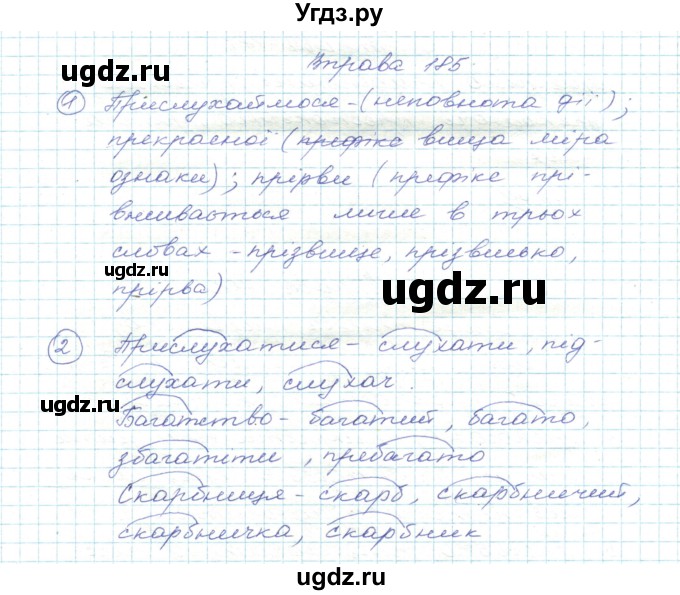 Угдз.ру
Вправа 185.
ugdz.ru
1 Прислухаймося - (неповнота дії);
прекрасної (префікс вища міра
ознаки); прірви (префікс прі-
вживається лише в трьох
словах - прізвище, прізвисько,
ugdz.ru
ugdz.ru
прірва)
2 Прислухатися - слухати, під-
слухати, слухач.
ugdz.ru
Багатство - багатий, багато,
збагатити, пребагато
Скарбниця - скарб, скарбничий,
скарбничка, скарбник
ugdz.ru
ugdz.ru